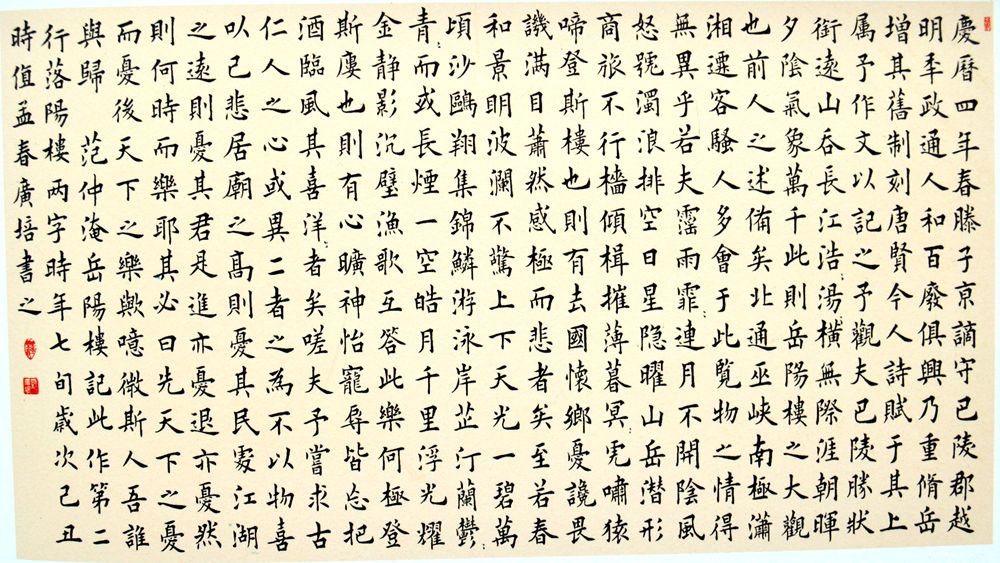 慶曆四年春滕子京謫守巴陵郡越
明季政通人和百廢俱興乃重脩岳
增其舊制刻唐賢今人詩賦于其上
属予作文以記之予觀夫巴陵勝狀
銜遠山吞長江浩〻湯〻橫無際涯朝暉
夕陰氣象萬千此則岳陽樓之大觀
也前人之述備矣北通巫峽南極瀟
湘遷客騷人多會于此覽物之情得
無異乎若夫霪雨霏〻連月不開陰風
怒號濁浪排空日星隐曜山岳潜形
商旅不行檣傾楫摧薄暮冥〻虎嘯猿
啼登斯樓也則有去國懷鄉憂讒畏
譏满目蕭然感極而悲者矣至若春
和景明波瀾不驚上下天光一碧萬
頃沙鷗翔集錦鱗游泳岸芷汀蘭鬱〻
青〻而或長煙一空皓月千里浮光耀
金静影沉璧漁歌互答此樂何極登
斯廔也則有心曠神怡寵辱皆忘把
酒臨風其喜洋〻者矣嗟夫予嘗求古
仁人之心或異二者之為不以物喜
以己悲居廟之高則憂其民處江湖
之遠則憂其君是進亦憂退亦憂然
則何時而樂耶其必曰先天下之憂
而憂後天下之樂歟噫微斯人吾誰
與歸 范仲淹岳陽樓記此作第二
行落陽樓兩字時年七旬歲次己丑
時值孟春廣培書之